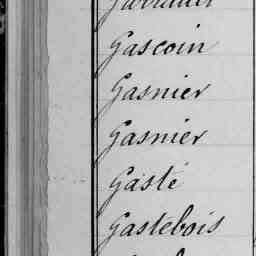 Gascoin
Gasnier
Gasnier
Gasté
Gastebois